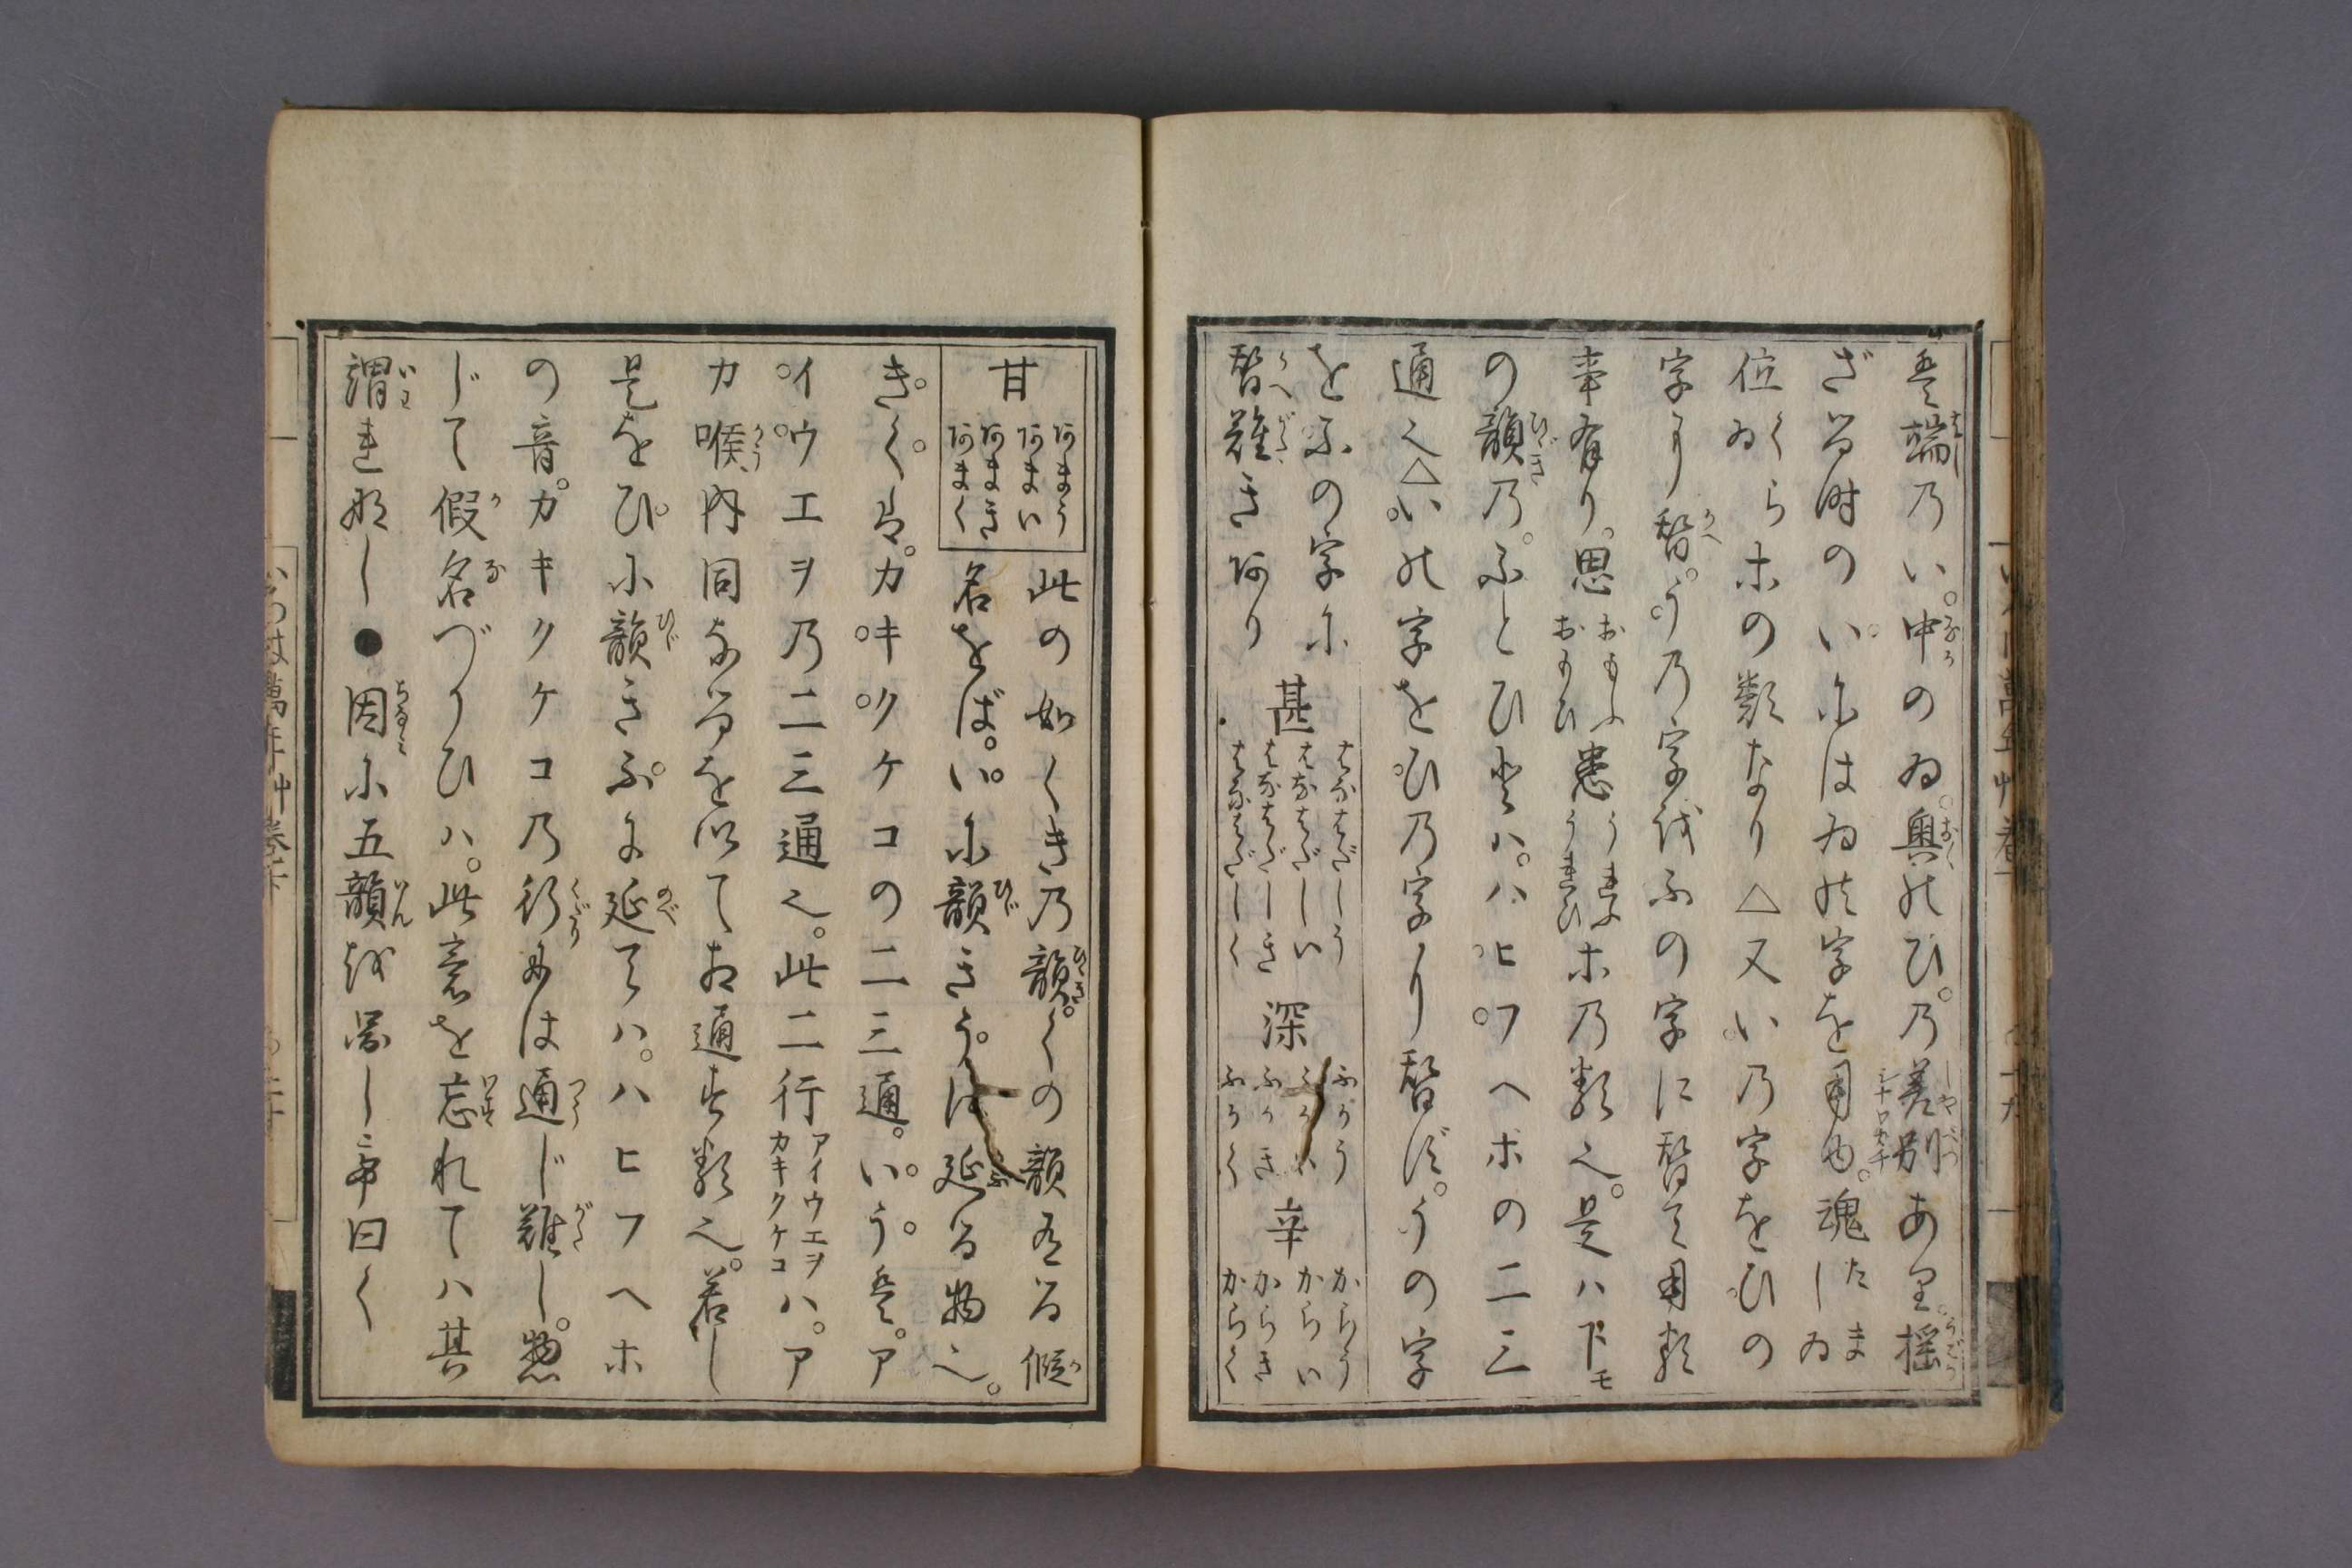 是端乃い。中のゐ。奥のひ。乃差別あり。揺
ざる時のい。にはゐの字を用ゆ。魂たましゐ
位くらゐホの類なり△又い乃字をひの
字より替。う乃字をふの字に替て用類
事有り。思おもふおもひ患うれふうれひホ乃類也。是ハ下モ
の韻乃。ふとひとハ。ハヒフヘホの二三
通也△いの字をひ乃字より替ず。うの字
をふの字に
替難きあり
甚
はなはだしう
はなはだしい
はなはだしき
はなはだしく
深
ふかう
ふかい
ふかき
ふかく
辛
からう
からい
からき
からく
甘
あまう
あまい
あまき
あまく
此の如くき乃韻。くの韻有る假
名をば。いに韻きうは延る物也。
き。く。は。カキクケコの二三通。い。う。是。ア
イウエヲ乃二三通也。此二行アイウエヲカキクケコハ。ア
カ喉内同なるを以てお通す類也。若し
是をひに韻きふに延てハ。ハヒフヘホ
の音。カキクケコ乃行には通じ難し。惣
じて假名づかひハ。此意を忘れてハ其
謂れ那し●因に五韻を畧し云曰く